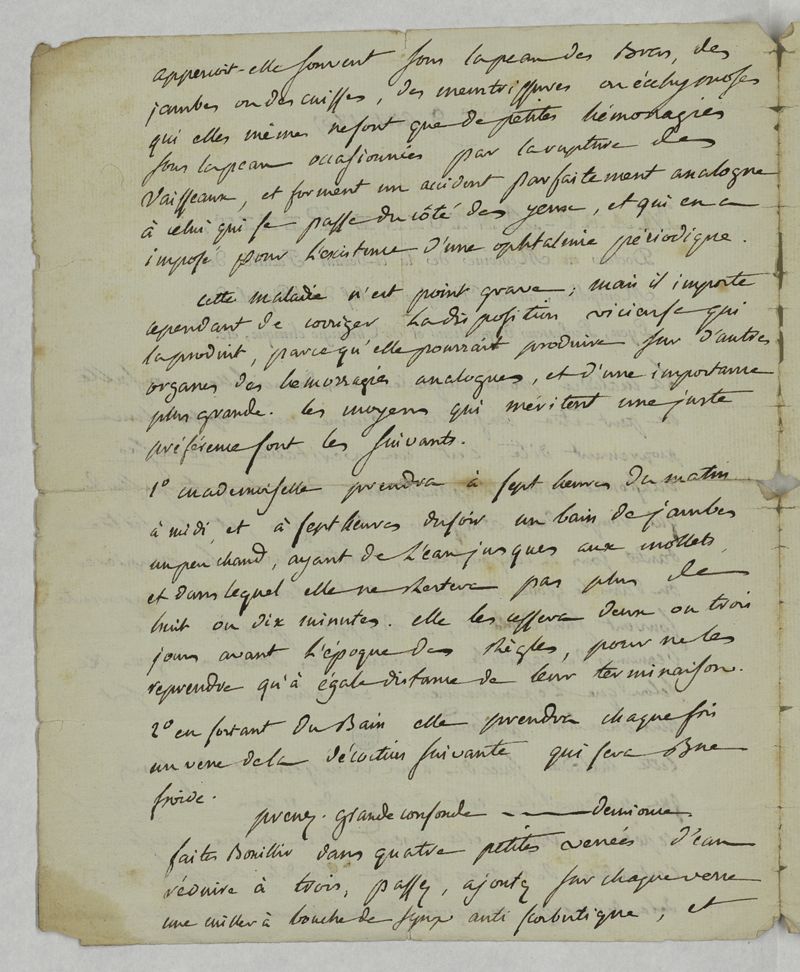 apperçoit-elle souvent sous la peau des Bras, des
jambes ou des cuisses, des meurtrissures ou échymoses
qui elles mêmes ne sont que de petites hémoragies
sous la peau occasionnées par la rupture des
Vaisseaux, et forment un accident parfaitement analogue
à celui qui se passe du côté des yeux, et qui en a
imposé pour l'existence d'une ophtalmie périodique.
cette maladie n'est point grave; mais il importe
cependant de corriger la disposition vicieuse qui
la produit, parce qu'elle pourrait produire sur d'autres
organes des hémorragies analogues, et d'une importance
plus grande. les moyens qui méritent une juste
préférence sont les suivants.
1° mademoiselle prendra à sept heures du matin
à midi, et à sept heures du soir un bain de jambes
un peu chaud, ayant de l'eau jusques aux mollets,
et dans lequel elle ne restera pas plus de
huit ou dix minutes. elle les cessera deux ou trois
jours avant l'époque des règles, pour ne les
reprendre qu'à égale distance de leur terminaison.
2° en sortant du Bain elle prendra chaque fois
un verre de la décoction suivante qui sera Bue
froide.
prenez. grande consoude - - — demionce.
faites Bouillir dans quatre petites verrées d'eau
réduire à trois, passez, ajoutez sur chaque verre
une cuiller à bouche de syrop anti scorbutique, et